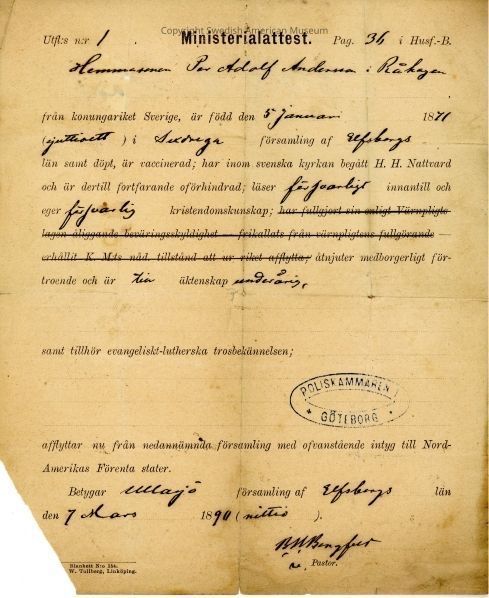 Copyright Swedish American Museum
Utfl:s n:r 1. Ministerialattest. Pag. 36 i Husf.-B.
Hemmasonen Per Adolf Andersson i Råhagen
från konungariket Sverige, är född den 5 Januari 1871
(sjuttioett) i Sexdrega församling af Elfsborgs
län samt döpt, är vaccinerad; har inom svenska kyrkan begått H. H. Nattvard
och är dertill fortfarande oförhindrad; läser försvarligt innantill och
eger försvarlig kristendomskunskap; har fullgjort sin enligt Värnpligts-
lagen åliggande beväringsskyldighet — frikallats från värnpligtens fullgörande —
erhållit K. M:ts nåd. tillstånd att ur riket afflytta; åtnjuter medborgerligt för-
troende och är till äktenskap underårig,
samt tillhör evangeliskt-lutherska trosbekännelsen;
POLISKAMMAREN I
GÖTEBORG
afflyttar nu från nedannämnda församling med ofvanstående intyg till Nord-
Amerikas Förenta stater.
Betygar Ullasjö församling af Elfsborgs län
den 7 Mars 1890 (nittio).
Pastor.
Blankett N:o 154.
W. Tullberg, Linköping.